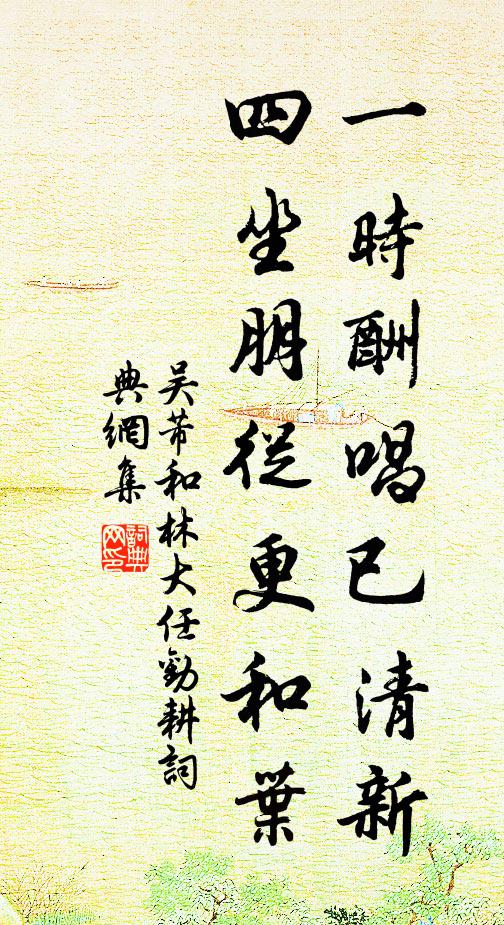 一時酬唱已清新
四坐朋從更和葉
吳芾和林大任勸耕詞
典網集
詞典
网印